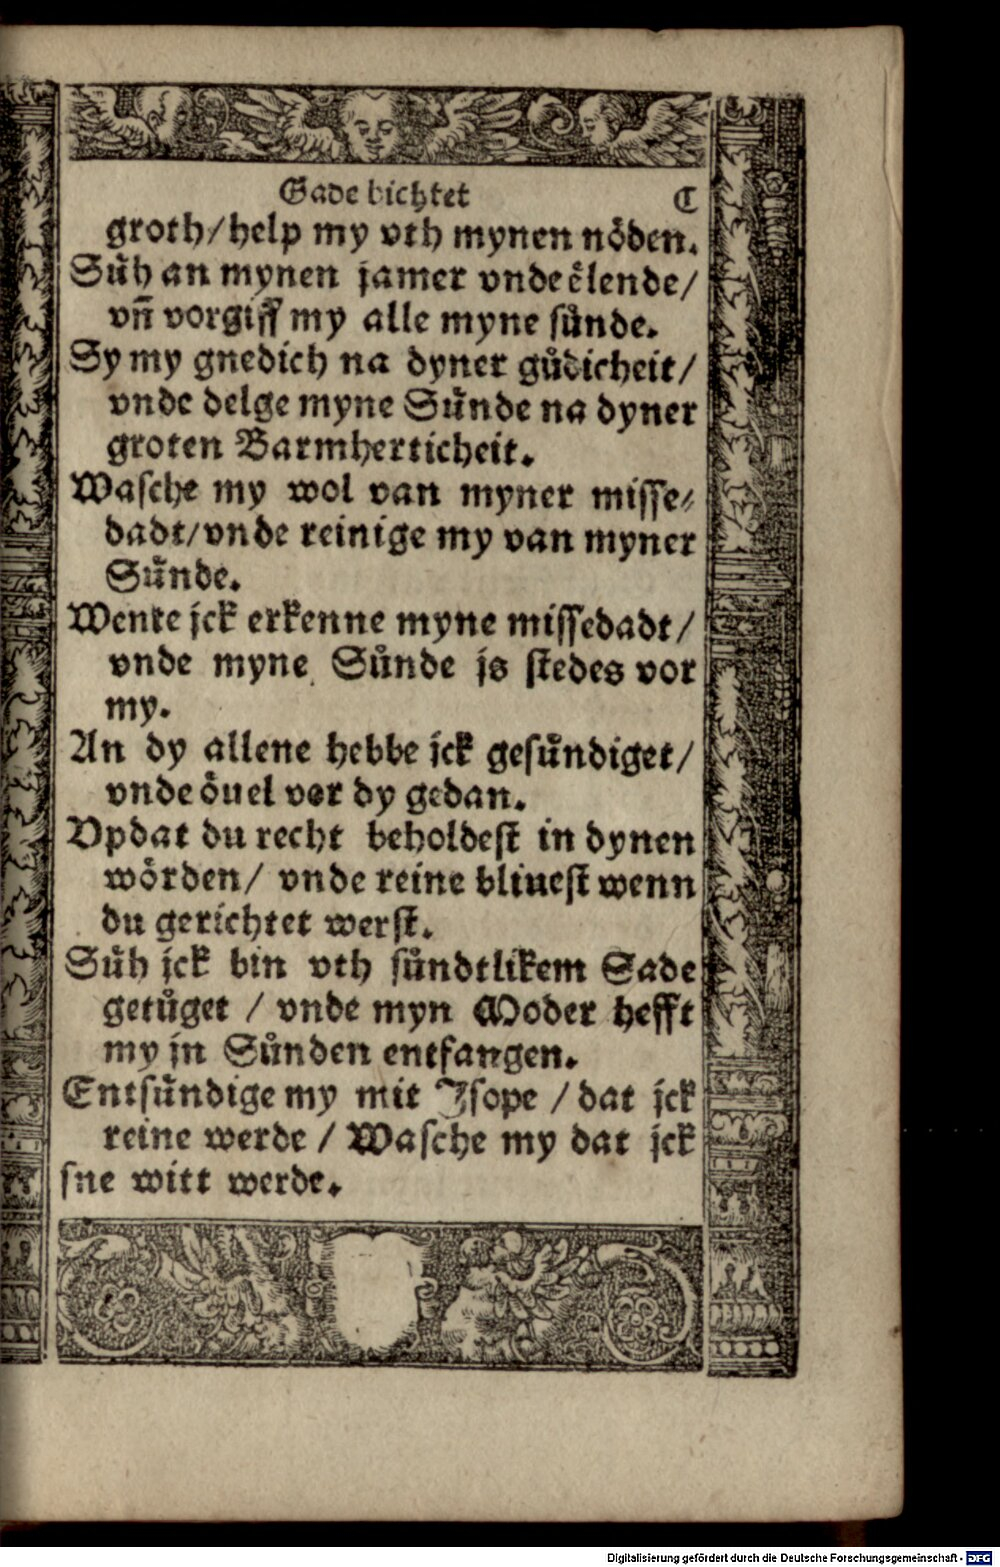 Gade bichtet C
groth/help my vth mynen nöden.
Süh an mynen jamer vnde ëlende/
vn̄ vorgiff my alle myne sünde.
Sy my gnedich na dyner gůdicheit/
vnde delge myne Sünde na dyner
groten Barmherticheit.
Wasche my wol van myner misse⸗
dadt/vnde reinige my van myner
Sünde.
Wente jck erkenne myne missedadt/
vnde myne Sünde js stedes vor
my.
An dy allene hebbe jck gesündiget/
vnde öuel vor dy gedan.
Vpdat du recht beholdest in dynen
wörden/ vnde reine bliuest wenn
du gerichtet werst.
Süh jck bin vth sündtlikem Sade
getüget / vnde myn Moder hefft
my jn Sünden entfangen.
Entsündige my mit Jsope / dat jck
reine werde / Wasche my dat jck
sne witt werde.
Digitalisierung gefördert durch die Deutsche Forschungsgemeinschaft - DFG